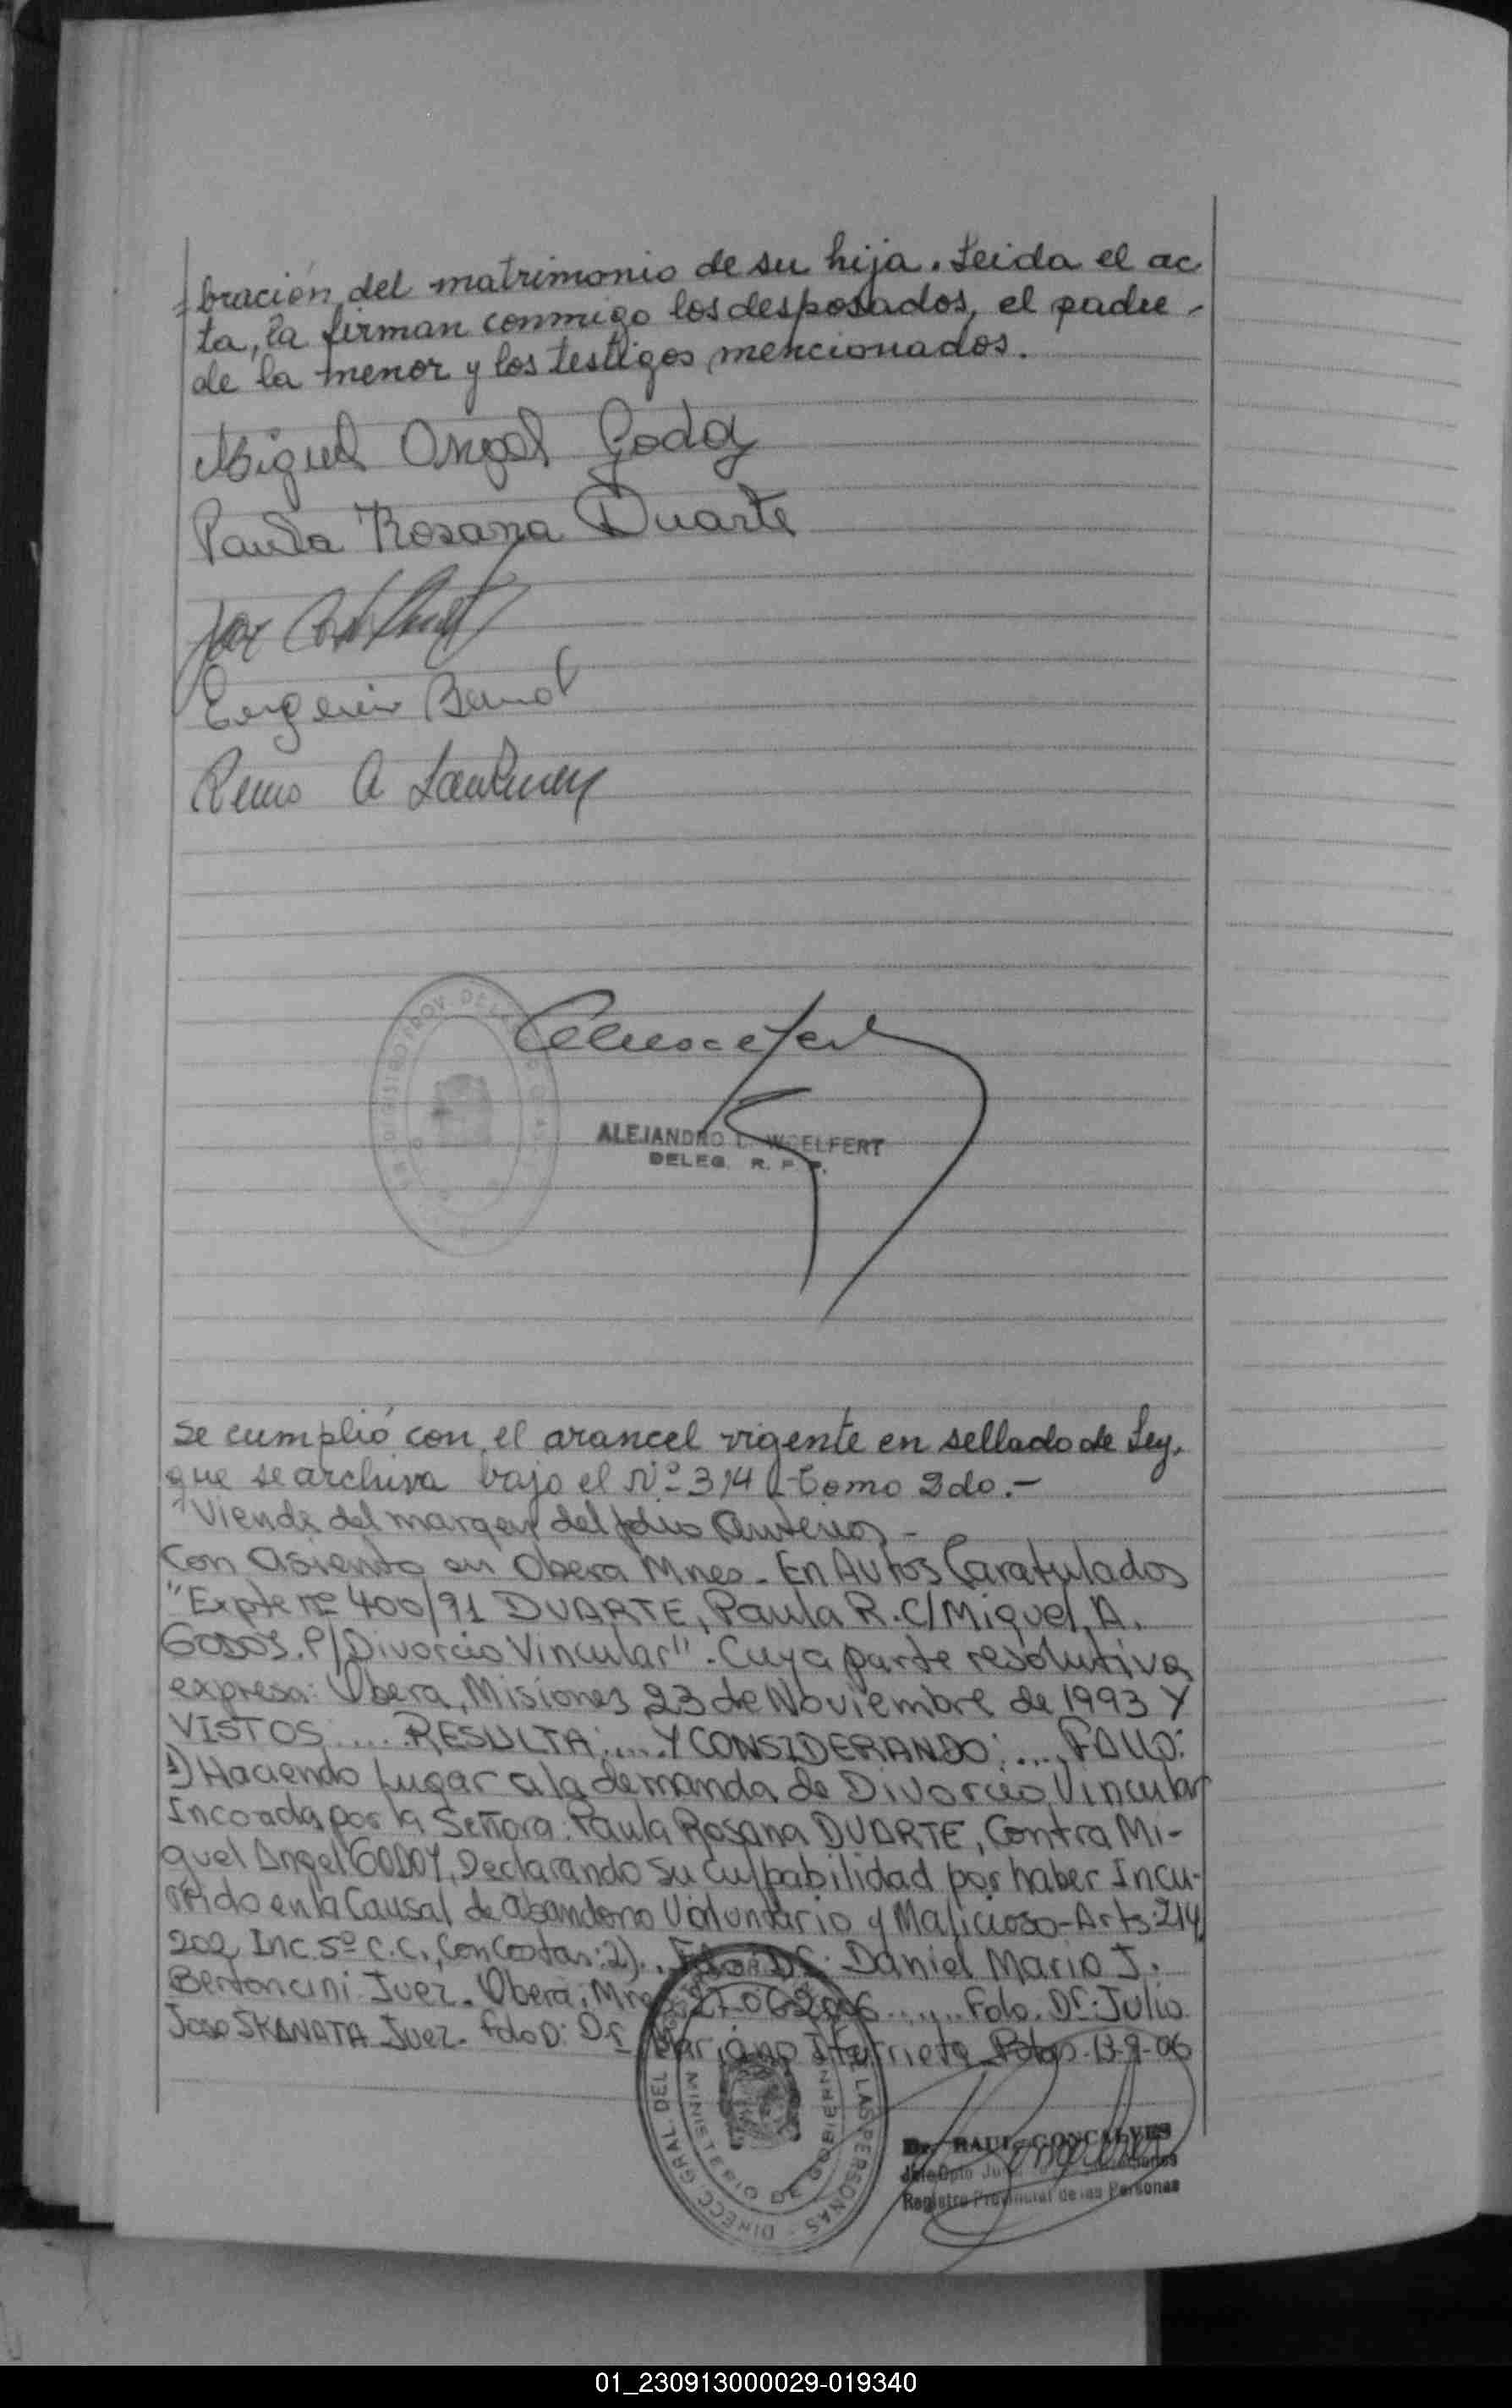 =bración del matrimonio de su hija. Leida el ac
ta, la firman conmigo los desposados, el padre -
de la menor y los testigos mencionados.
Miguel Angel Godoy
Paula Rosana Duarte
Eugenio
A
ALEJANDRO L. WOELFERT
DELEG. R. P. P.
Se cumplió con el arancel vigente en sellado de Ley,
que se archiva bajo el Nº 314 Tomo 2do.-
"Viende del margen del folio Anterior -
Con asiento en Obera Mnes - En Autos Caratulados
"Expte nº 400/91 DUARTE, Paula R. C/ Miguel, A.
GODOY. P/ Divorcio Vincular". Cuya parte resolutiva
expresa: Obera, Misiones 23 de Noviembre de 1993 Y
VISTOS..... RESULTA:.... Y CONSIDERANDO:.... FALLO:
1) Haciendo Lugar a la demanda de Divorcio Vincular
Incoada por la Señora: Paula Rosana DUARTE, Contra Mi-
guel Angel GODOY, Declarando su culpabilidad por haber Incu-
rrido en la Causal de abandono Voluntario y Malicioso - Arts: 214,
202, Inc. 5º C.C., Con Costas: 2).. Fdo: Dr: Daniel Mario J.
Bertoncini Juez. Obera, Mnes 27-06-2006..... Fdo. Dr: Julio
Jose SKANATA Juez. Fdo D: Dr Mariano Iturrieta Pdas. 13-9-06
DIRECC. GRAL. DEL REGISTRO LAS PERSONAS
MINISTERIO DE GOBIERNO
Dr. RAUL GONCALVES
Jefe Dpto
Registro Provincial de las Personas
01_230913000029-019340